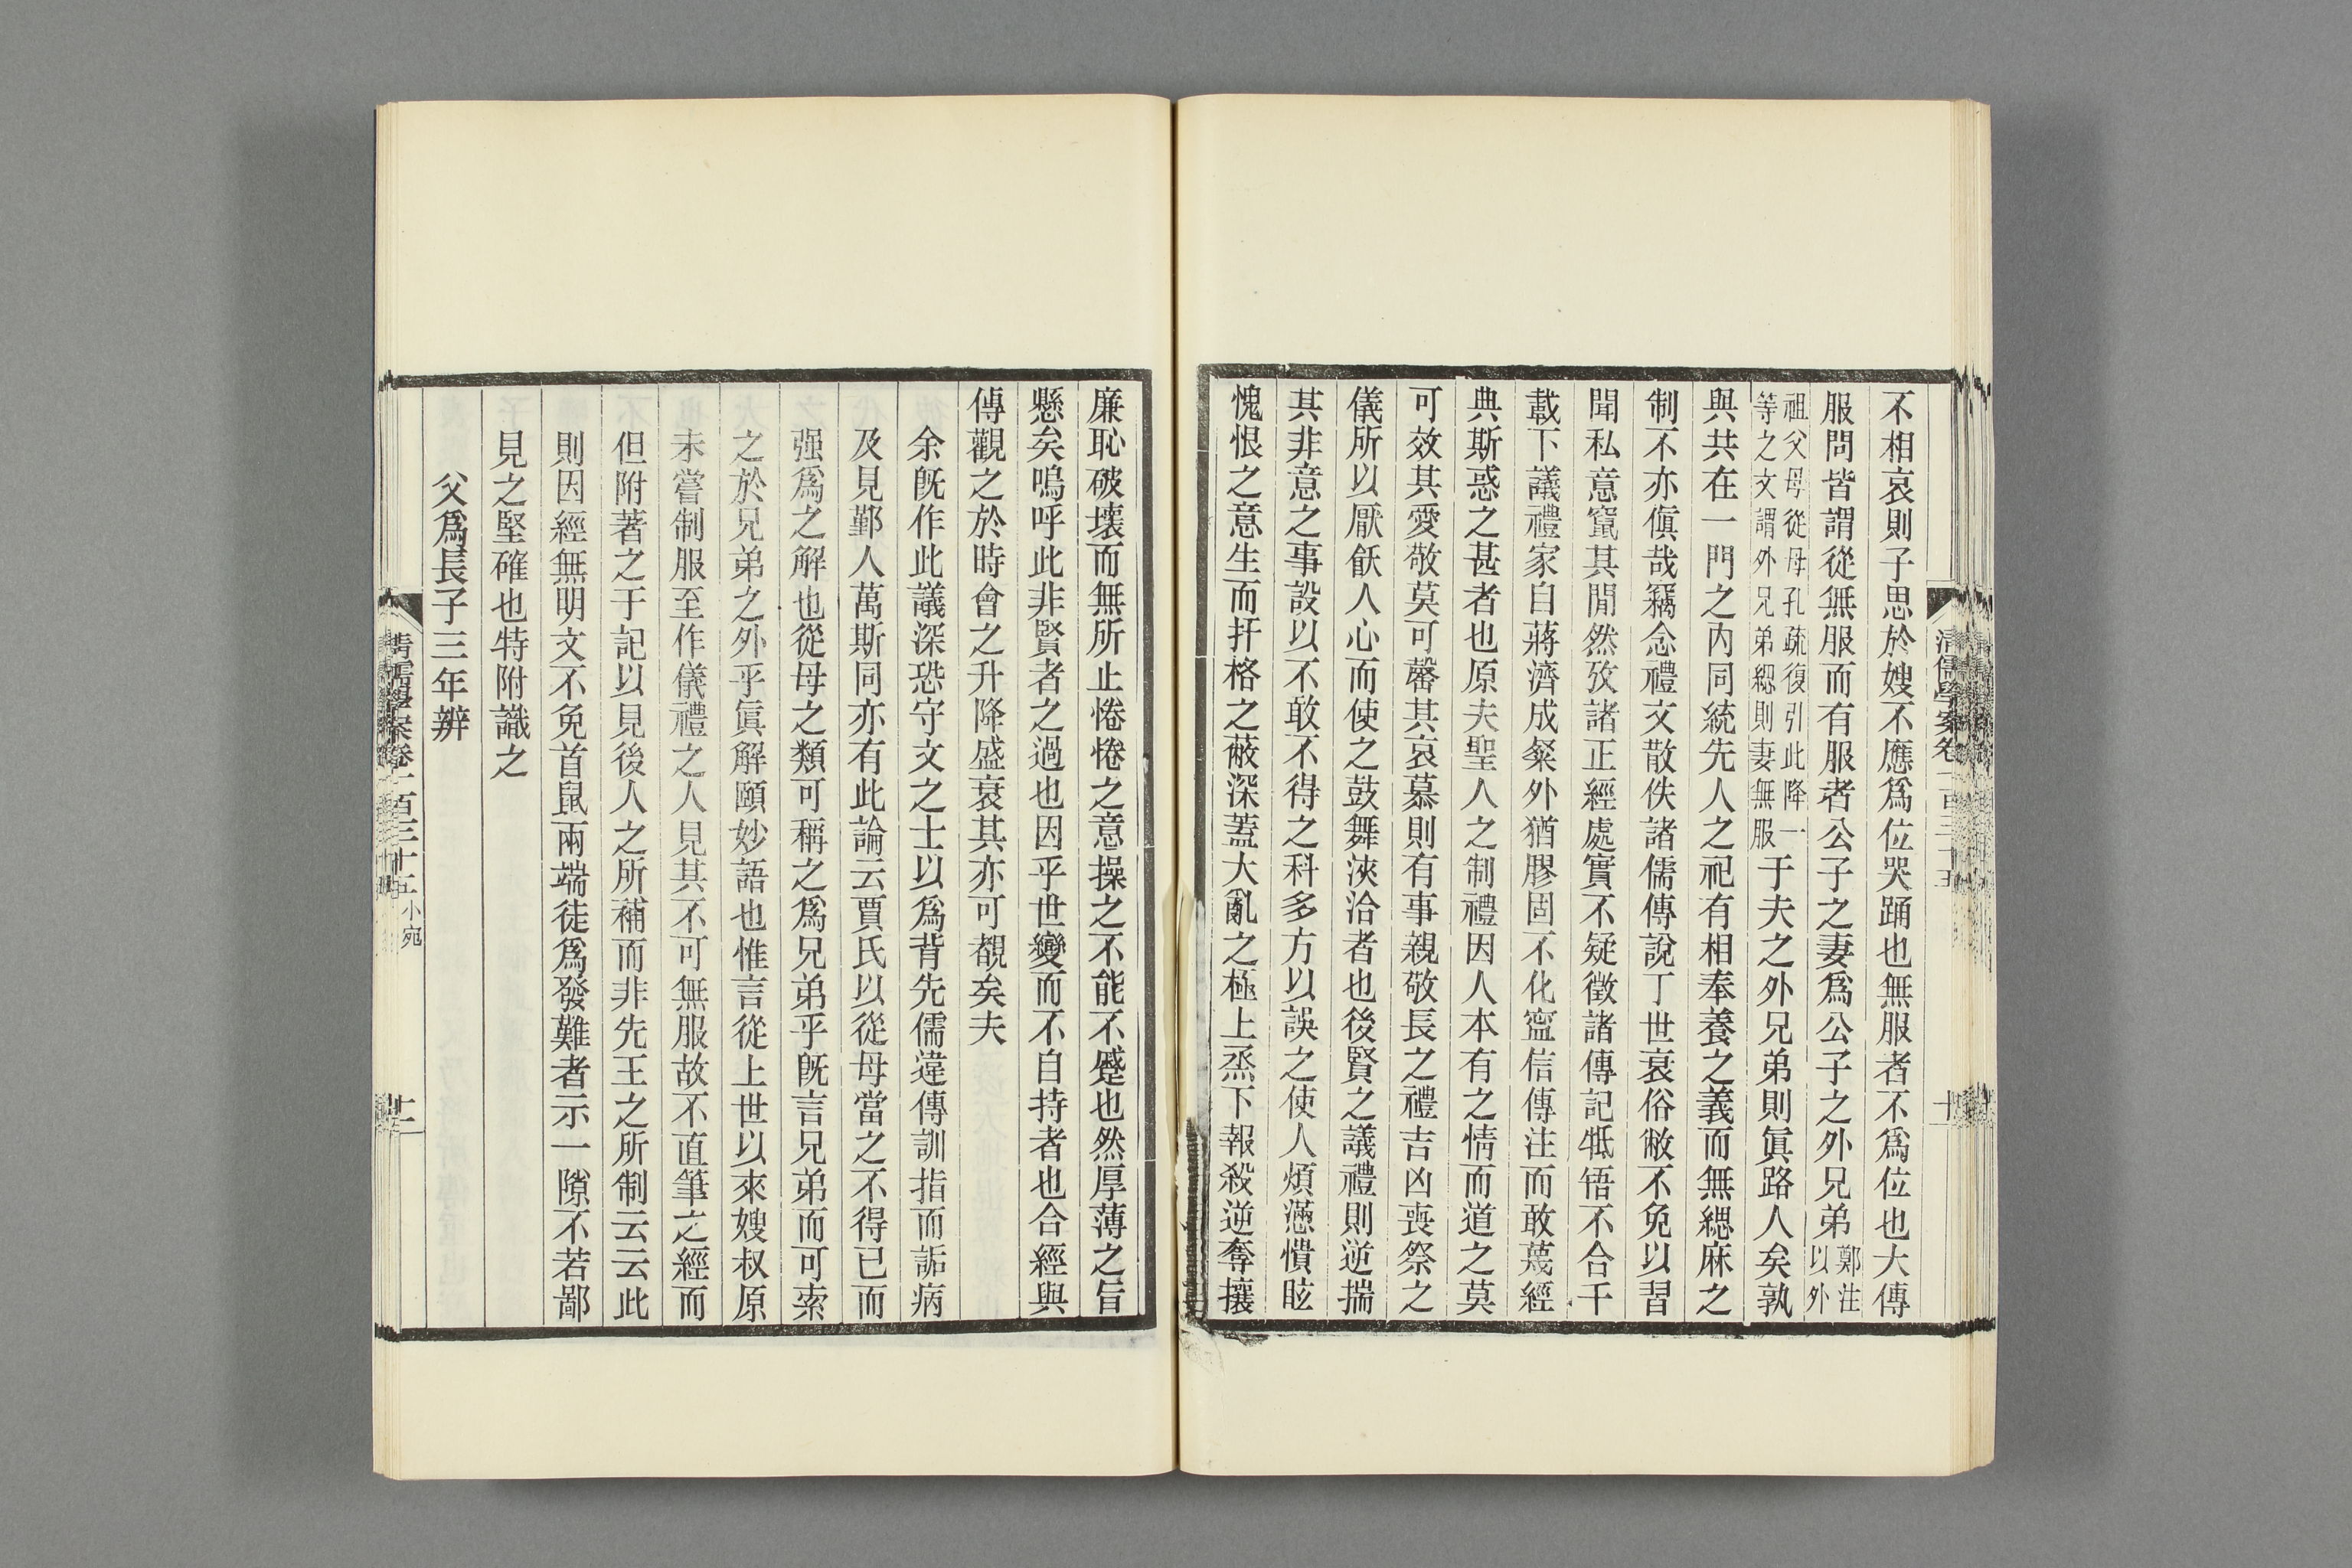 不相哀則子思於嫂不應爲位哭踊也無服者不爲位也大傳
服問皆謂從無服而有服者公子之妻爲公子之外兄弟鄭注以外
祖父母從母孔疏復引此降一等之文謂外兄弟緦則妻無服于夫之外兄弟則眞路人矣孰
與共在一門之內同統先人之祀有相奉養之義而無緦麻之
制不亦傎哉竊念禮文散佚諸儒傳說丁世衰俗敝不免以習
聞私意竄其閒然攷諸正經處實不疑徵諸傳記牴牾不合干
載下議禮家自蔣濟成粲外猶膠固不化寍信傳注而敢蔑經
典斯惑之甚者也原夫聖人之制禮因人本有之情而道之莫
可效其愛敬莫可罄其哀慕則有事親敬長之禮吉凶喪祭之
儀所以厭飫人心而使之鼓舞浹洽者也後賢之議禮則逆揣
其非意之事設以不敢不得之科多方以誤之使人煩懣憒眩
愧恨之意生而扞格之蔽深蓋大亂之極上烝下報殺逆奪攘
廉恥破壞而無所止惓惓之意操之不能不蹙也然厚薄之旨
懸矣嗚呼此非賢者之過也因乎世變而不自持者也合經與
傳觀之於時會之升降盛衰其亦可覩矣夫
余旣作此議深恐守文之士以爲背先儒違傳訓指而詬病
及見鄞人萬斯同亦有此論云賈氏以從母當之不得已而
强爲之解也從母之類可稱之爲兄弟乎旣言兄弟而可索
之於兄弟之外乎眞解頤妙語也惟言從上世以來嫂叔原
未嘗制服至作儀禮之人見其不可無服故不直筆之經而
但附著之于記以見後人之所補而非先王之所制云云此
則因經無明文不免首鼠兩端徒爲發難者示一隙不若鄙
見之堅確也特附識之
父爲長子三年辨
清儒學案卷一百三十五 小宛
十一